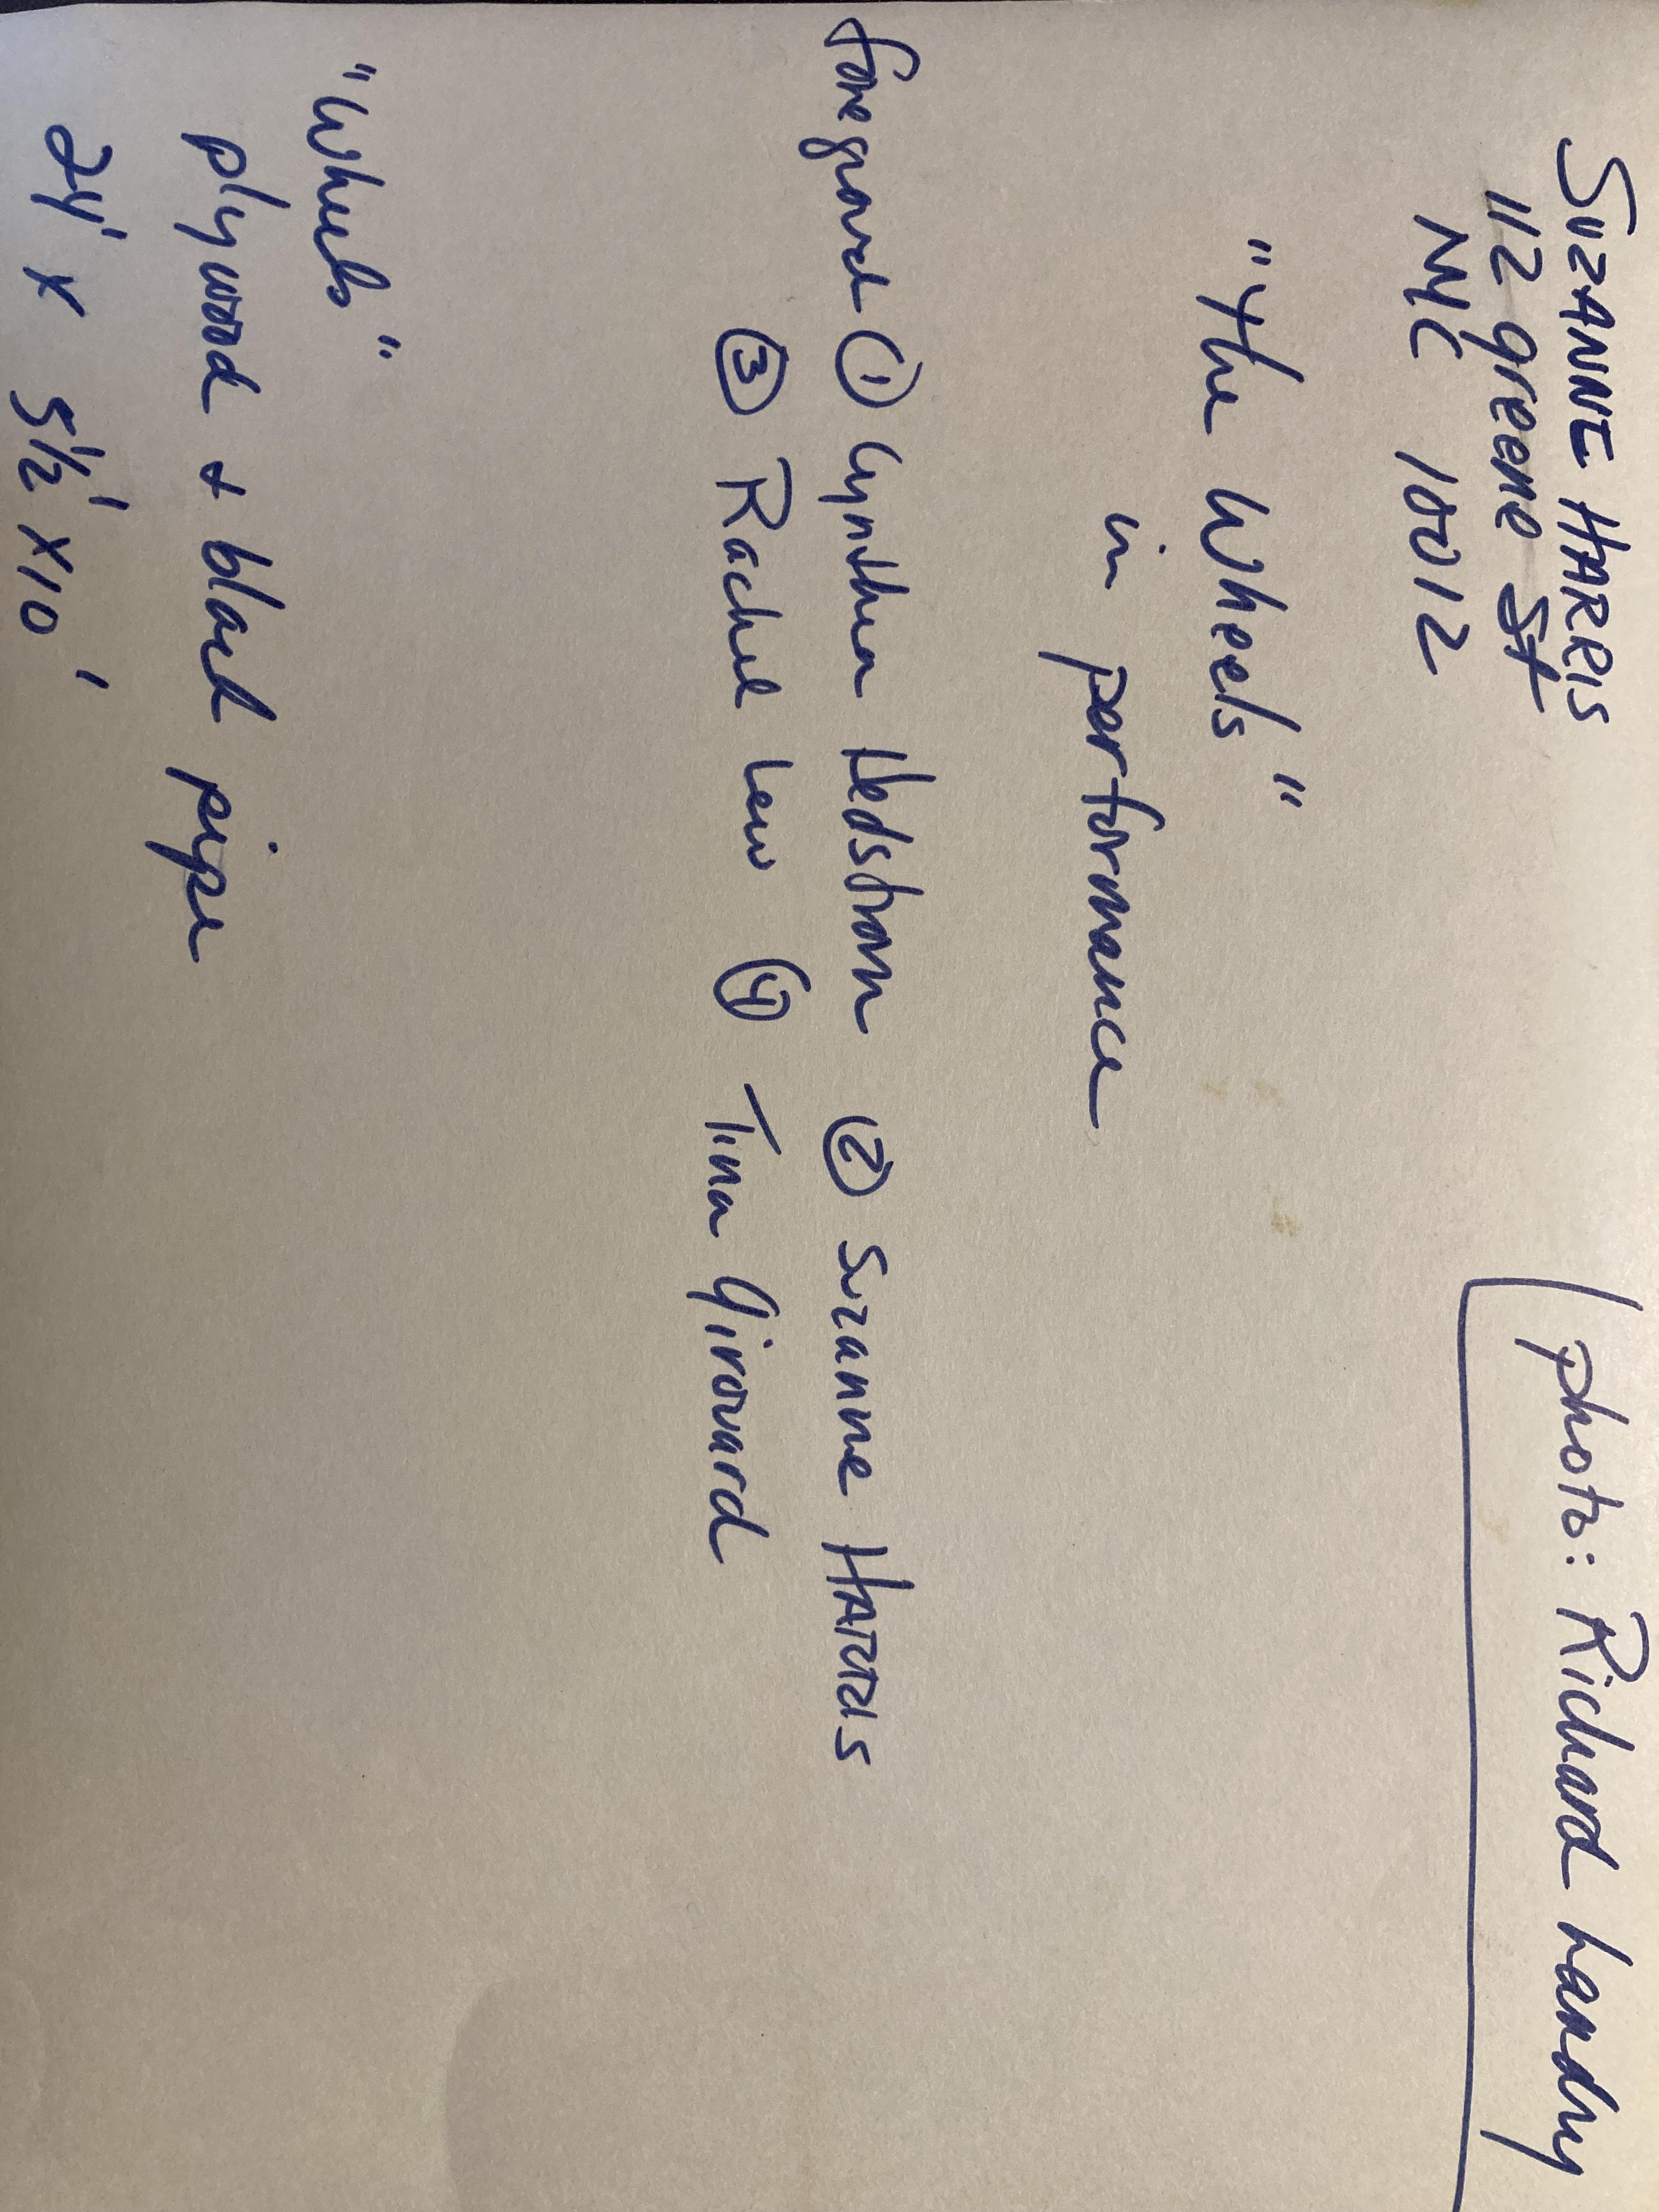 SUZANNE HARRIS
112 greene St
NYC 10012
photo: Richard Landry
"The Wheels"
in performance
foreground ① Cynthia Hedstrom ② Suzanne HARRIS
③ Rachel Lew ④ Tina Girouard
"Wheels"
plywood + black pipe
24' x 5½' x 10'